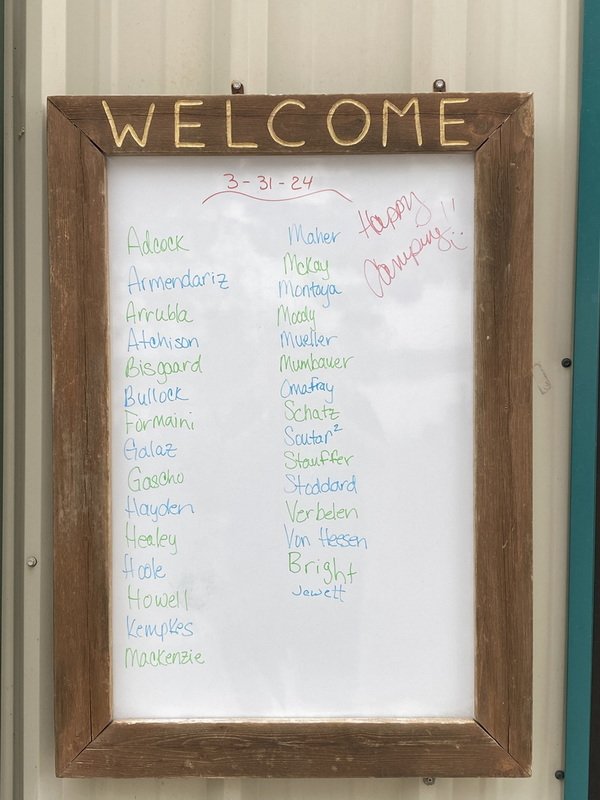 WELCOME
3-31-24
Happy
Camping!!
Adcock
Armendariz
Arrubla
Atchison
Bisgaard
Bullock
Formaini
Galaz
Gascho
Hayden
Healey
Hoole
Howell
Kempkes
Mackenzie
Maher
McKay
Montoya
Moody
Mueller
Mumbauer
Omafray
Schatz
Soutar²
Stauffer
Stoddard
Verbelen
Von Heesen
Bright
Jewett